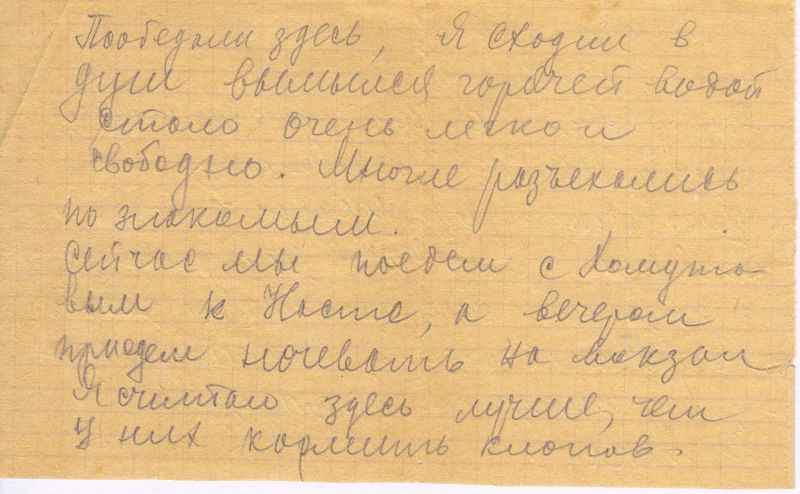 Пообедали здесь, Я сходил в
душ вымылся горячей водой
стало очень легко и
свободно. Многие разъехались
по знакомым.
Сейчас мы поедем с Хомуто-
вым к Насте, а вечером
приедем ночевать на вокзал
Я считаю здесь лучше, чем
у них кормить клопов.